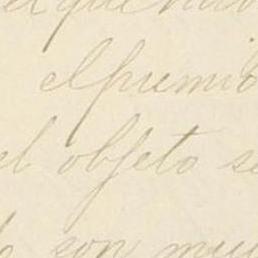 el que
el premio
el objeto se
son muy